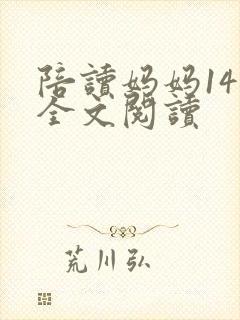 陪讀妈妈14
全文閱讀
荒川弘